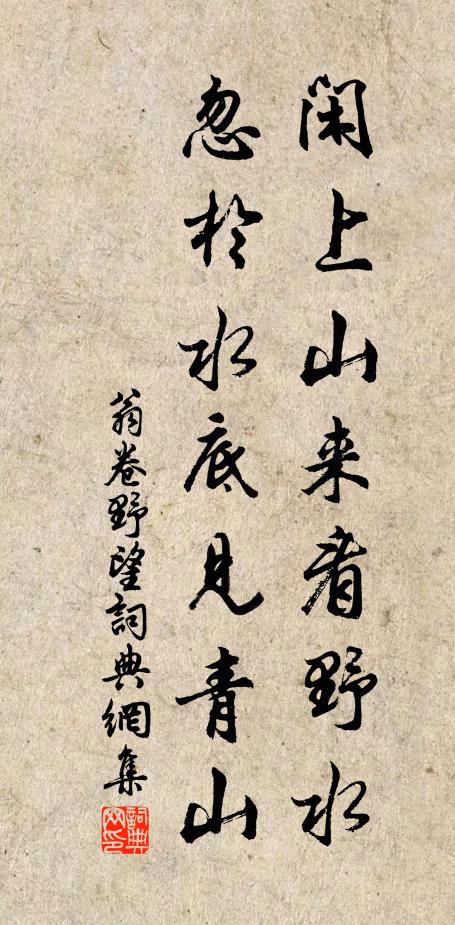 閑上山来看野水
忽於水底見青山
翁卷野望詞典網集
詞典网印